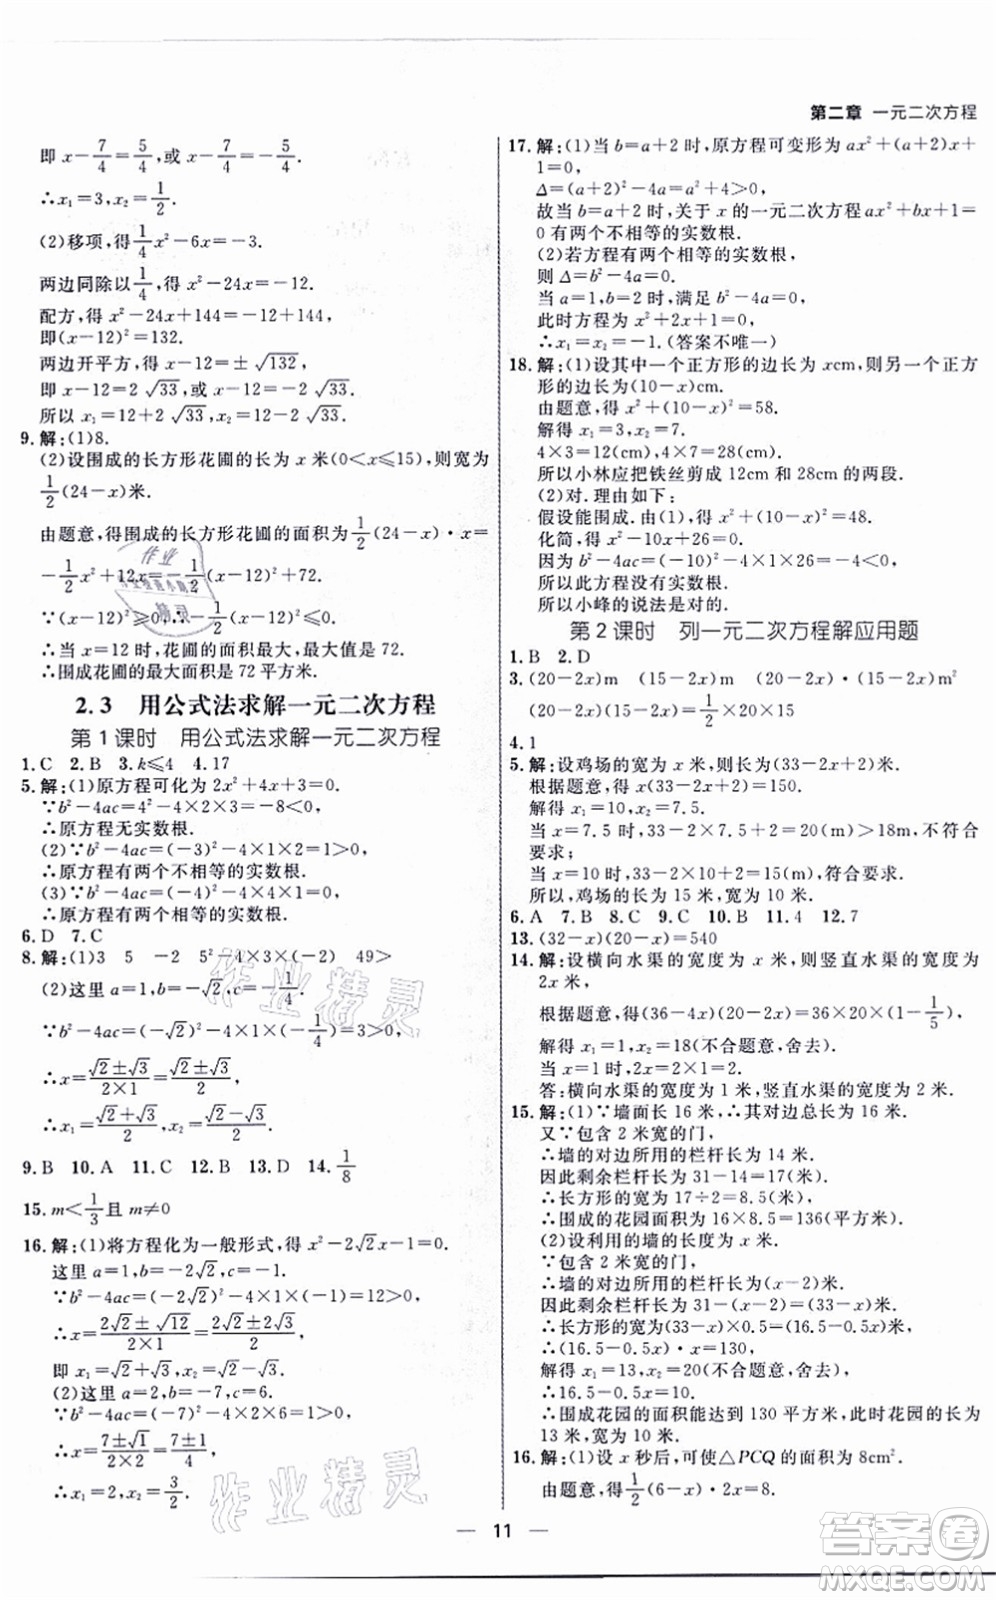 第二章 一元二次方程
即 x－7/4＝5/4,或 x－7/4＝－5/4.
∴x₁＝3,x₂＝1/2.
(2)移项,得1/4x²－6x＝－3.
两边同除以1/4,得 x²－24x＝－12.
配方,得 x²－24x＋144＝－12＋144,
即(x－12)²＝132.
两边开平方,得 x－12＝±√132,
即 x－12＝2√33,或 x－12＝－2√33.
所以 x₁＝12＋2√33,x₂＝12－2√33.
9. 解:(1)8.
(2)设围成的长方形花圃的长为 x 米(0＜x≤15),则宽为
1/2(24－x)米.
由题意,得围成的长方形花圃的面积为1/2(24－x)·x＝
－1/2x²＋12x＝－1/2(x－12)²＋72.
∵(x－12)²≥0,∴－1/2(x－12)²≤0.
∴当 x＝12 时,花圃的面积最大,最大值是 72.
∴围成花圃的最大面积是 72 平方米.
2.3 用公式法求解一元二次方程
第 1 课时 用公式法求解一元二次方程
1. C 2. B 3. k≤4 4. 17
5. 解:(1)原方程可化为 2x²＋4x＋3＝0.
∵b²－4ac＝4²－4×2×3＝－8＜0,
∴原方程无实数根.
(2)∵b²－4ac＝(－3)²－4×1×2＝1＞0,
∴原方程有两个不相等的实数根.
(3)∵b²－4ac＝(－6)²－4×1×9＝0,
∴原方程有两个相等的实数根.
6. D 7. C
8. 解:(1)3 5 －2 5²－4×3×(－2) 49＞
(2)这里 a＝1,b＝－√2,c＝－1/4.
∵b²－4ac＝(－√2)²－4×1×(－1/4)＝3＞0,
∴x＝(√2±√3)/(2×1)＝(√2±√3)/2,
∴x₁＝(√2＋√3)/2,x₂＝(√2－√3)/2.
9. B 10. A 11. C 12. B 13. D 14. 1/8
15. m＜1/3且 m≠0
16. 解:(1)将方程化为一般形式,得 x²－2√2x－1＝0.
这里 a＝1,b＝－2√2,c＝－1.
∵b²－4ac＝(－2√2)²－4×1×(－1)＝12＞0,
∴x＝(2√2±√12)/(2×1)＝(2√2±2√3)/2,
即 x₁＝√2＋√3,x₂＝√2－√3.
(2)这里 a＝2,b＝－7,c＝6.
∵b²－4ac＝(－7)²－4×2×6＝1＞0,
∴x＝(7±√1)/(2×2)＝(7±1)/4,
∴x₁＝2,x₂＝3/2.
17. 解:(1)当 b＝a＋2 时,原方程可变形为 ax²＋(a＋2)x＋
1＝0.
Δ＝(a＋2)²－4a＝a²＋4＞0,
故当 b＝a＋2 时,关于 x 的一元二次方程 ax²＋bx＋1＝
0 有两个不相等的实数根.
(2)若方程有两个相等的实数根,
则 Δ＝b²－4a＝0.
当 a＝1,b＝2 时,满足 b²－4a＝0,
此时方程为 x²＋2x＋1＝0,
∴x₁＝x₂＝－1.(答案不唯一)
18. 解:(1)设其中一个正方形的边长为 xcm,则另一个正方
形的边长为(10－x)cm.
由题意,得 x²＋(10－x)²＝58.
解得 x₁＝3,x₂＝7.
4×3＝12(cm),4×7＝28(cm).
所以小林应把铁丝剪成 12cm 和 28cm 的两段.
(2)对.理由如下:
假设能围成.由(1),得 x²＋(10－x)²＝48.
化简,得 x²－10x＋26＝0.
因为 b²－4ac＝(－10)²－4×1×26＝－4＜0,
所以此方程没有实数根.
所以小峰的说法是对的.
第 2 课时 列一元二次方程解应用题
1. B 2. D
3. (20－2x)m (15－2x)m (20－2x)(15－2x)m²
(20－2x)(15－2x)＝1/2×20×15
4. 1
5. 解:设鸡场的宽为 x 米,则长为(33－2x＋2)米.
根据题意,得 x(33－2x＋2)＝150.
解得 x₁＝10,x₂＝7.5.
当 x＝7.5 时,33－2×7.5＋2＝20(m)＞18(m),不符合
要求;
当 x＝10 时,33－2×10＋2＝15(m).
所以,鸡场的长为 15 米,宽为 10 米.
6. A 7. B 8. C 9. C 10. B 11. 4 12. 7
13. (32－x)(20－x)＝540
14. 解:设横向水渠的宽度为 x 米,则竖直水渠的宽度为
2x 米,
根据题意,得(36－4x)(20－2x)＝36×20×(1－1/5),
解得 x₁＝1,x₂＝18(不合题意,舍去).
当 x＝1 时,2x＝2×1＝2.
答:横向水渠的宽度为 1 米,竖直水渠的宽度为 2 米.
15. 解:(1)∵墙面长 16 米,∴其对边总长为 16 米.
又∵包含 2 米宽的门,
∴墙的对边所用的栏杆长为 14 米.
因此剩余栏杆长为 31－14＝17(米),
∴长方形的宽为 17÷2＝8.5(米),
∴围成的花园面积为 16×8.5＝136(平方米).
(2)设利用的墙的长度为 x 米.
∵包含 2 米宽的门,
∴墙的对边所用的栏杆长为(x－2)米.
因此剩余栏杆长为 31－(x－2)＝(33－x)米,
∴长方形的宽为(33－x)×0.5＝(16.5－0.5x)米.
解得 x₁＝13,x₂＝20(不符合题意,舍去),
∴16.5－0.5x＝10.
∴围成花园的面积能达到 130 平方米,此时花园的长为
13 米,宽为 10 米.
16. 解:(1)设 x 秒后,可使△PCQ 的面积为 8cm².
由题意,得1/2(6－x)·2x＝8,
11
作业精灵
作业精灵
答案圈
MXQE.COM